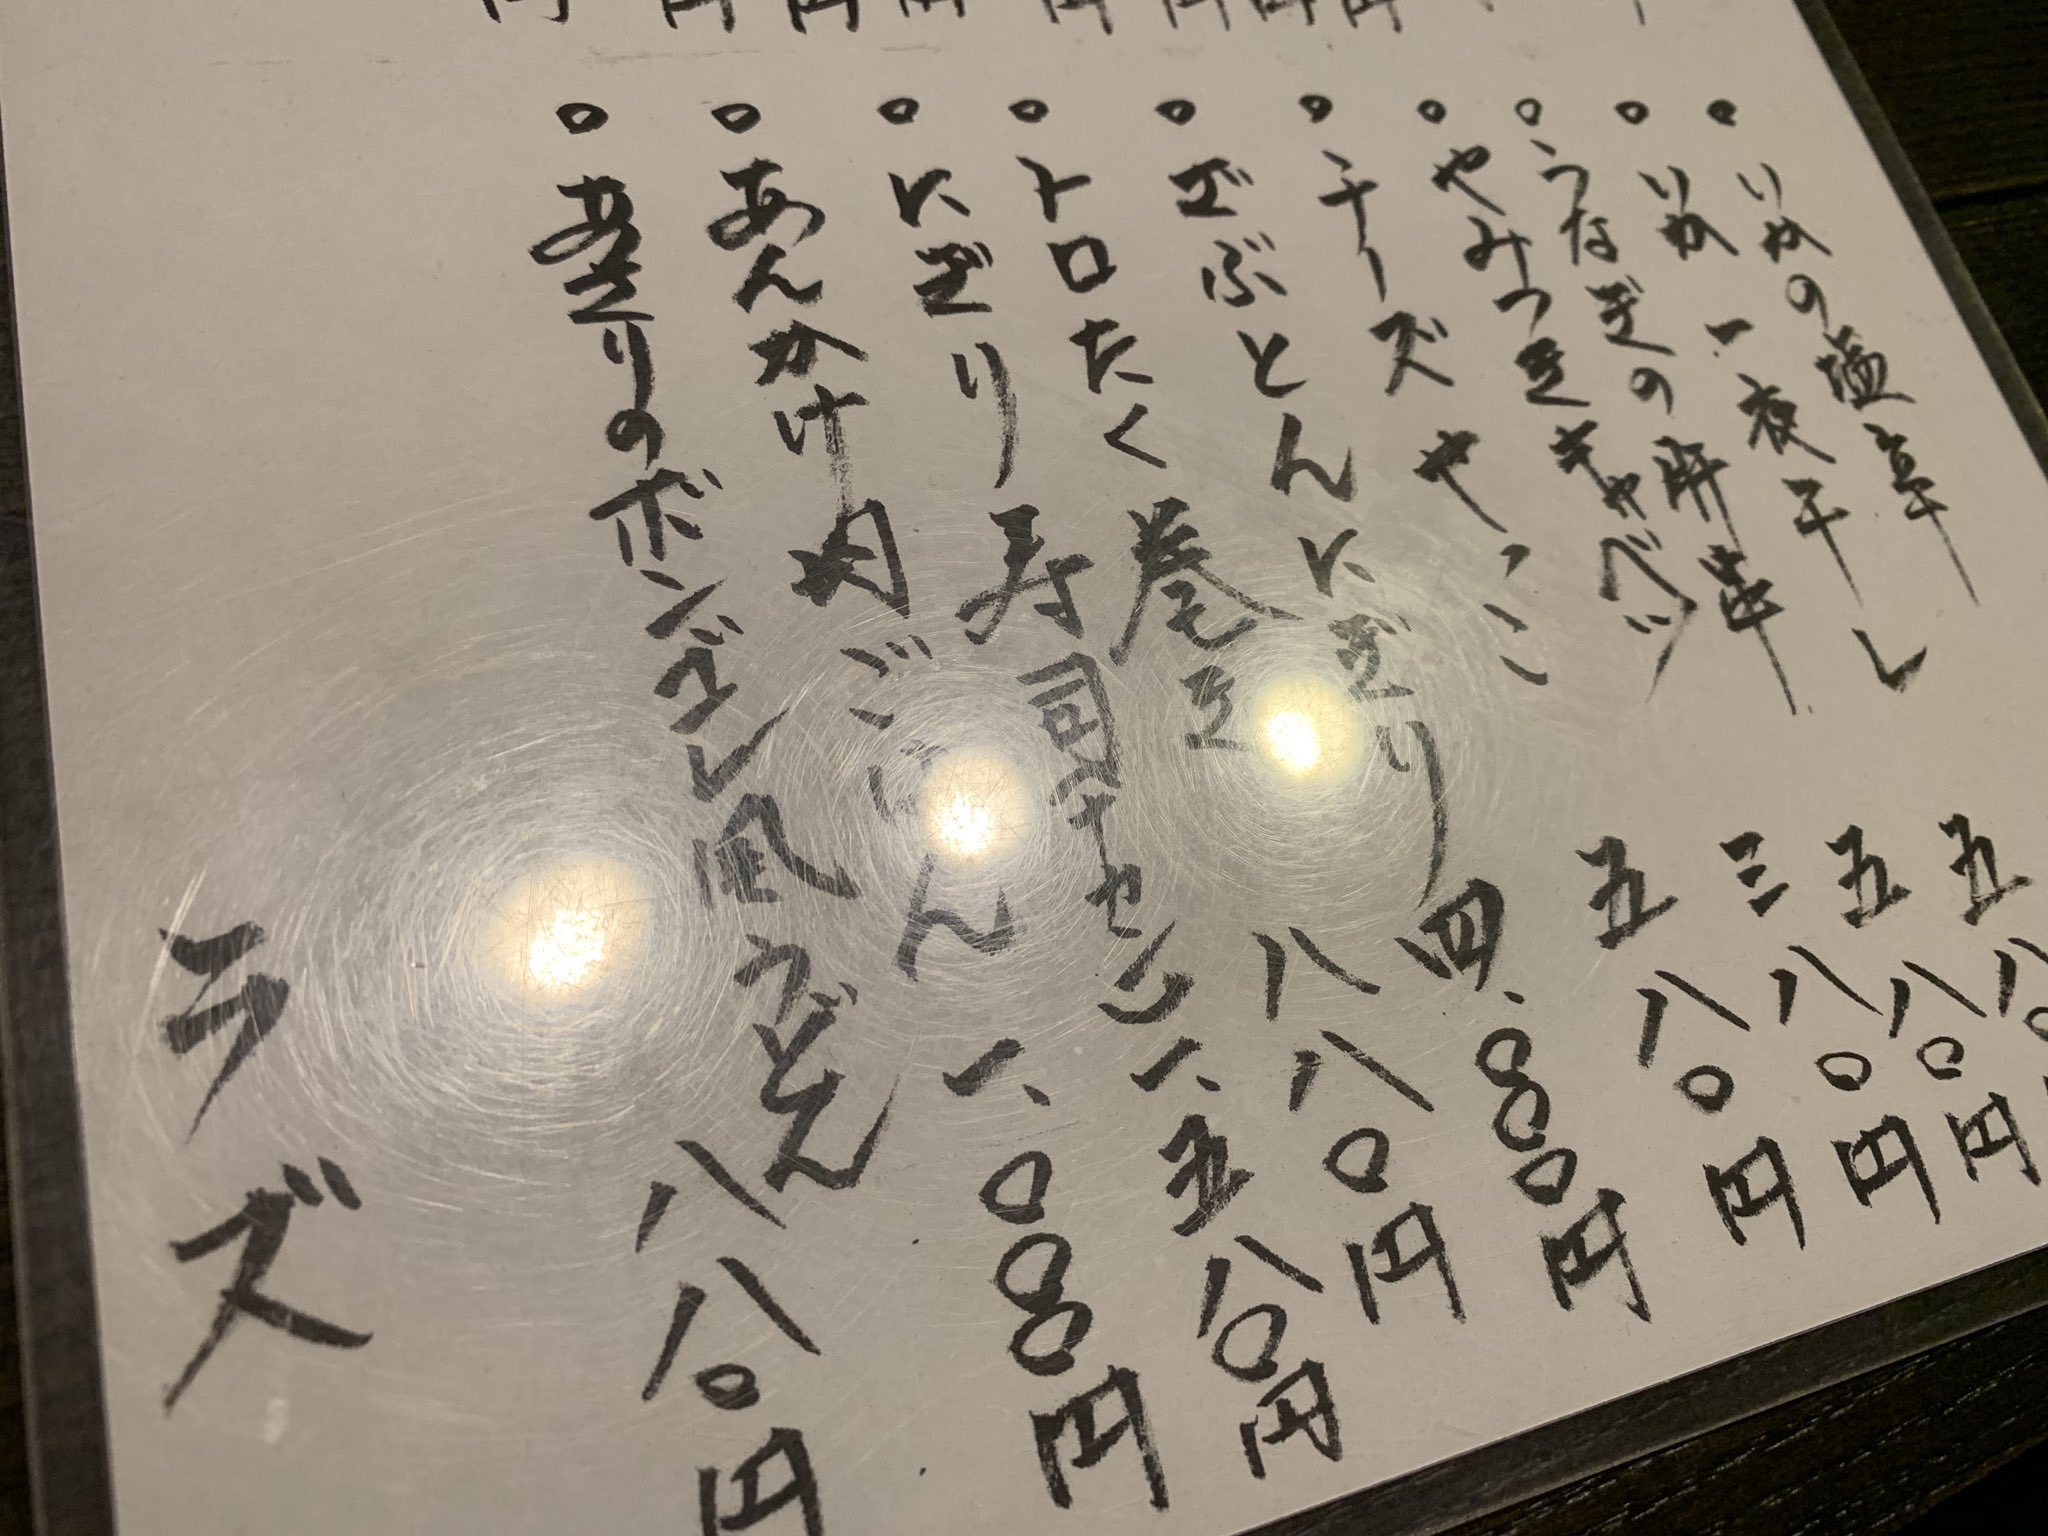 いかの塩辛
いか一夜干し 五八〇
うなぎの肝串 五八〇円
やみつきキャベツ 三八〇円
チーズやっこ 五八〇円
ざぶとんにぎり 四、〇〇〇円
トロたく巻き 八八〇円
にぎり寿司 一、五八〇円
あんかけ肉ごはん 一、〇〇〇円
あさりのボンゴレ風うどん 八八〇円
ラズ